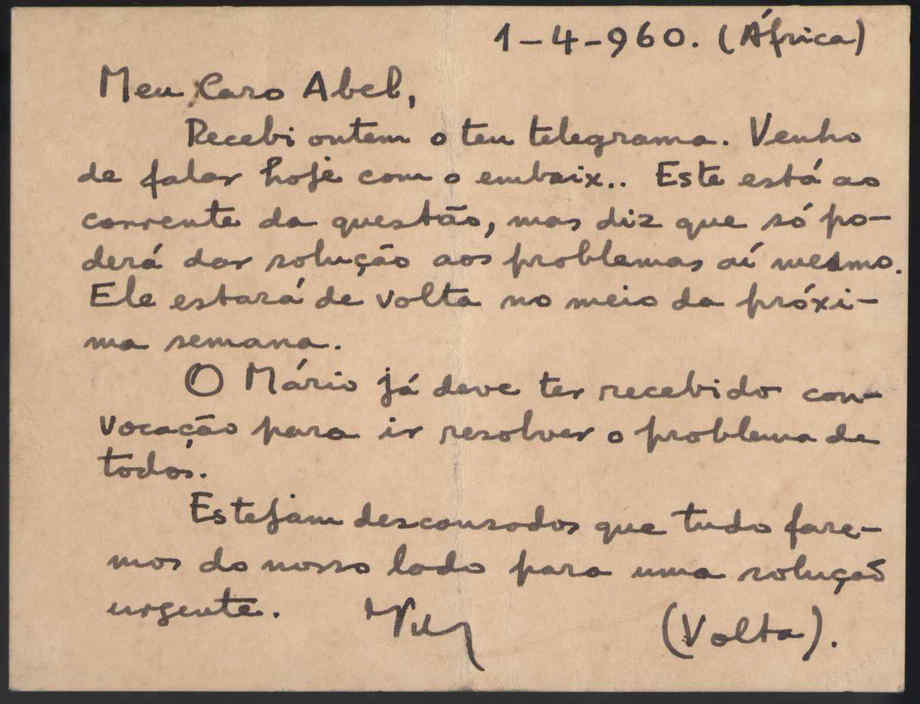 1-4-960. (África)
Meu Caro Abel,
Recebi ontem o teu telegrama. Venho
de falar hoje com o embaix.. Este está ao
corrente da questão, mas diz que só po-
derá dar solução aos problemas aí mesmo.
Ele estará de volta no meio da próxi-
ma semana.
O Mário já deve ter recebido con-
vocação para ir resolver o problema de
todos.
Estejam descansados que tudo fare-
mos do nosso lado para uma solução
urgente.
(Volta).